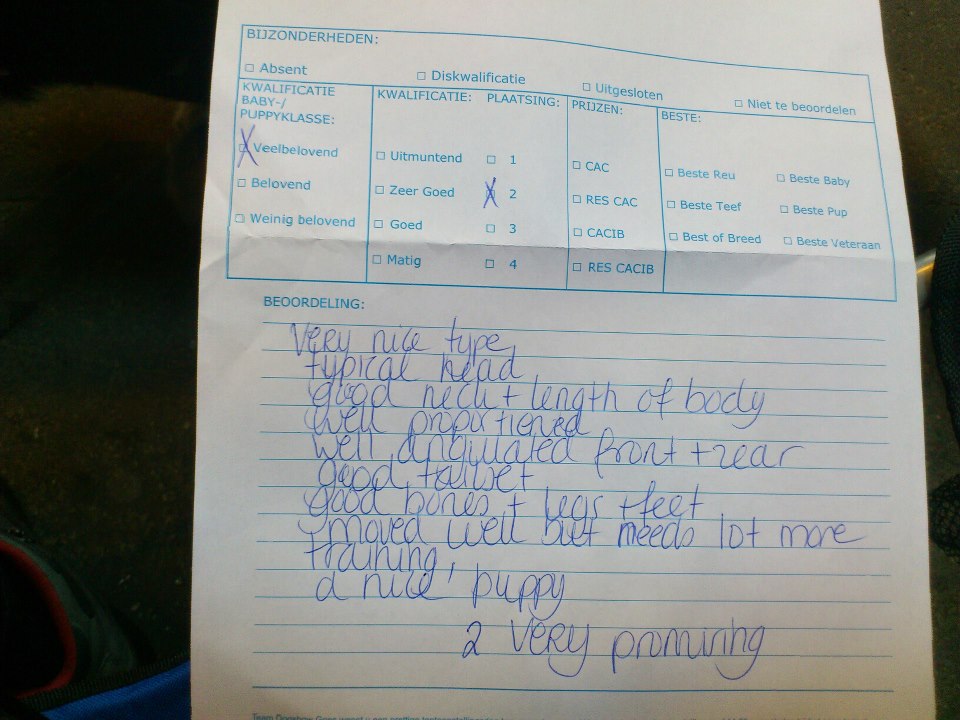 BIJZONDERHEDEN:
☐ Absent ☐ Diskwalificatie ☐ Uitgesloten ☐ Niet te beoordelen
KWALIFICATIE BABY-/ PUPPYKLASSE:
☒ Veelbelovend
☐ Belovend
☐ Weinig belovend
KWALIFICATIE: PLAATSING:
☐ Uitmuntend ☐ 1
☐ Zeer Goed ☒ 2
☐ Goed ☐ 3
☐ Matig ☐ 4
PRIJZEN:
☐ CAC
☐ RES CAC
☐ CACIB
☐ RES CACIB
BESTE:
☐ Beste Reu ☐ Beste Baby
☐ Beste Teef ☐ Beste Pup
☐ Best of Breed ☐ Beste Veteraan
BEOORDELING:
Very nice type,
typical head,
good neck + length of body
well proportioned
well angulated front + rear
good tailset
good bones + legs + feet
moved well but needs lot more
training,
a nice puppy
2 very promising